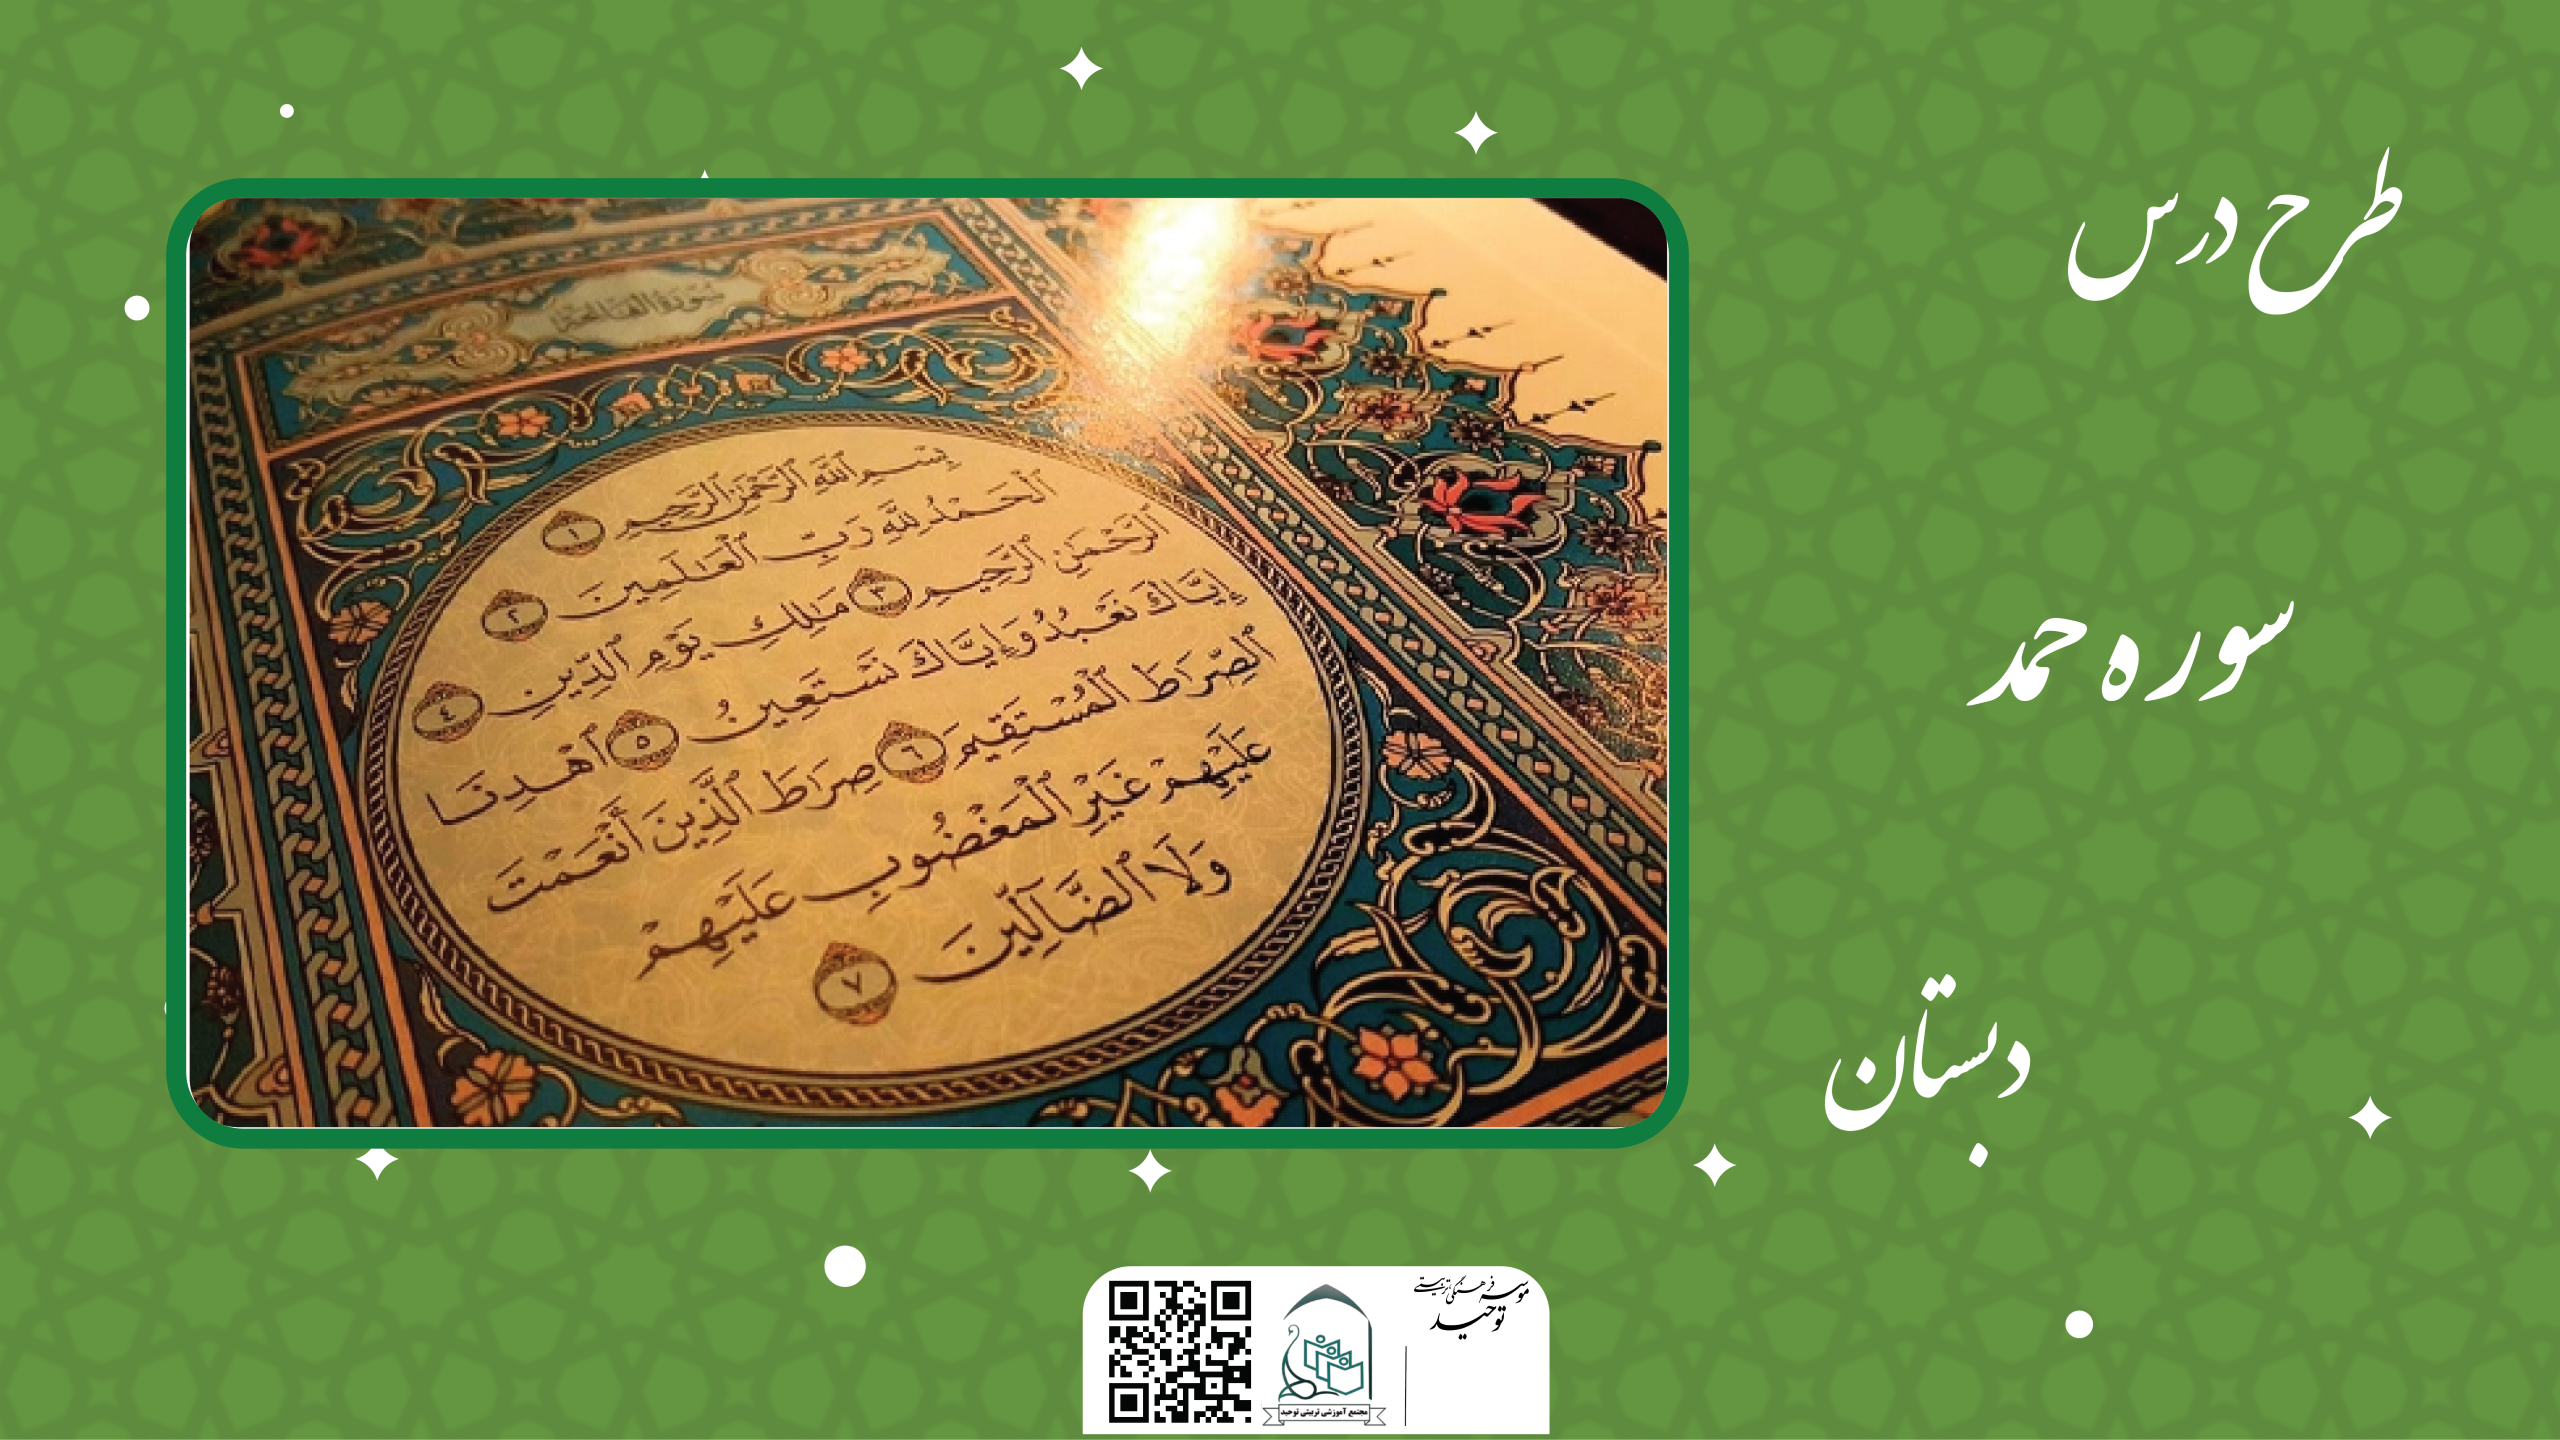 طرح درس
سوره حمد
دبستان
سورة الفاتحة
بِسْمِ ٱللَّهِ ٱلرَّحْمَٰنِ ٱلرَّحِيمِ ١
ٱلْحَمْدُ لِلَّهِ رَبِّ ٱلْعَٰلَمِينَ ٢
ٱلرَّحْمَٰنِ ٱلرَّحِيمِ ٣ مَٰلِكِ يَوْمِ ٱلدِّينِ ٤
إِيَّاكَ نَعْبُدُ وَإِيَّاكَ نَسْتَعِينُ ٥ ٱهْدِنَا
ٱلصِّرَٰطَ ٱلْمُسْتَقِيمَ ٦ صِرَٰطَ ٱلَّذِينَ أَنْعَمْتَ
عَلَيْهِمْ غَيْرِ ٱلْمَغْضُوبِ عَلَيْهِمْ
وَلَا ٱلضَّآلِّينَ ٧
موسسه فرهنگی تربیتی
توحید
مجتمع آموزشی تربیتی توحید